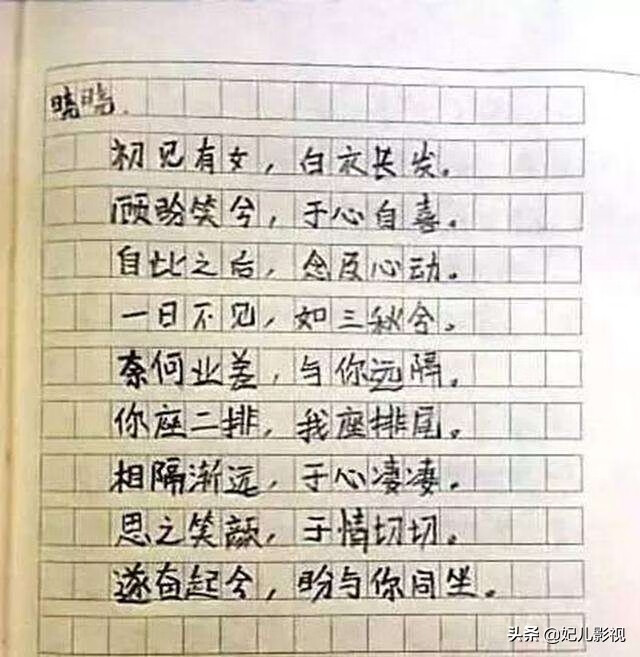 晓晓.
初见有女，白衣长发。
顾盼笑兮，于心自喜。
自此之后，念及心动。
一日不见，如三秋兮。
奈何业差，与你远隔。
你座二排，我座排尾。
相隔渐远，于心凄凄。
思之笑颜，于情切切。
遂奋起兮，盼与你同坐。
头条 @妃儿影视